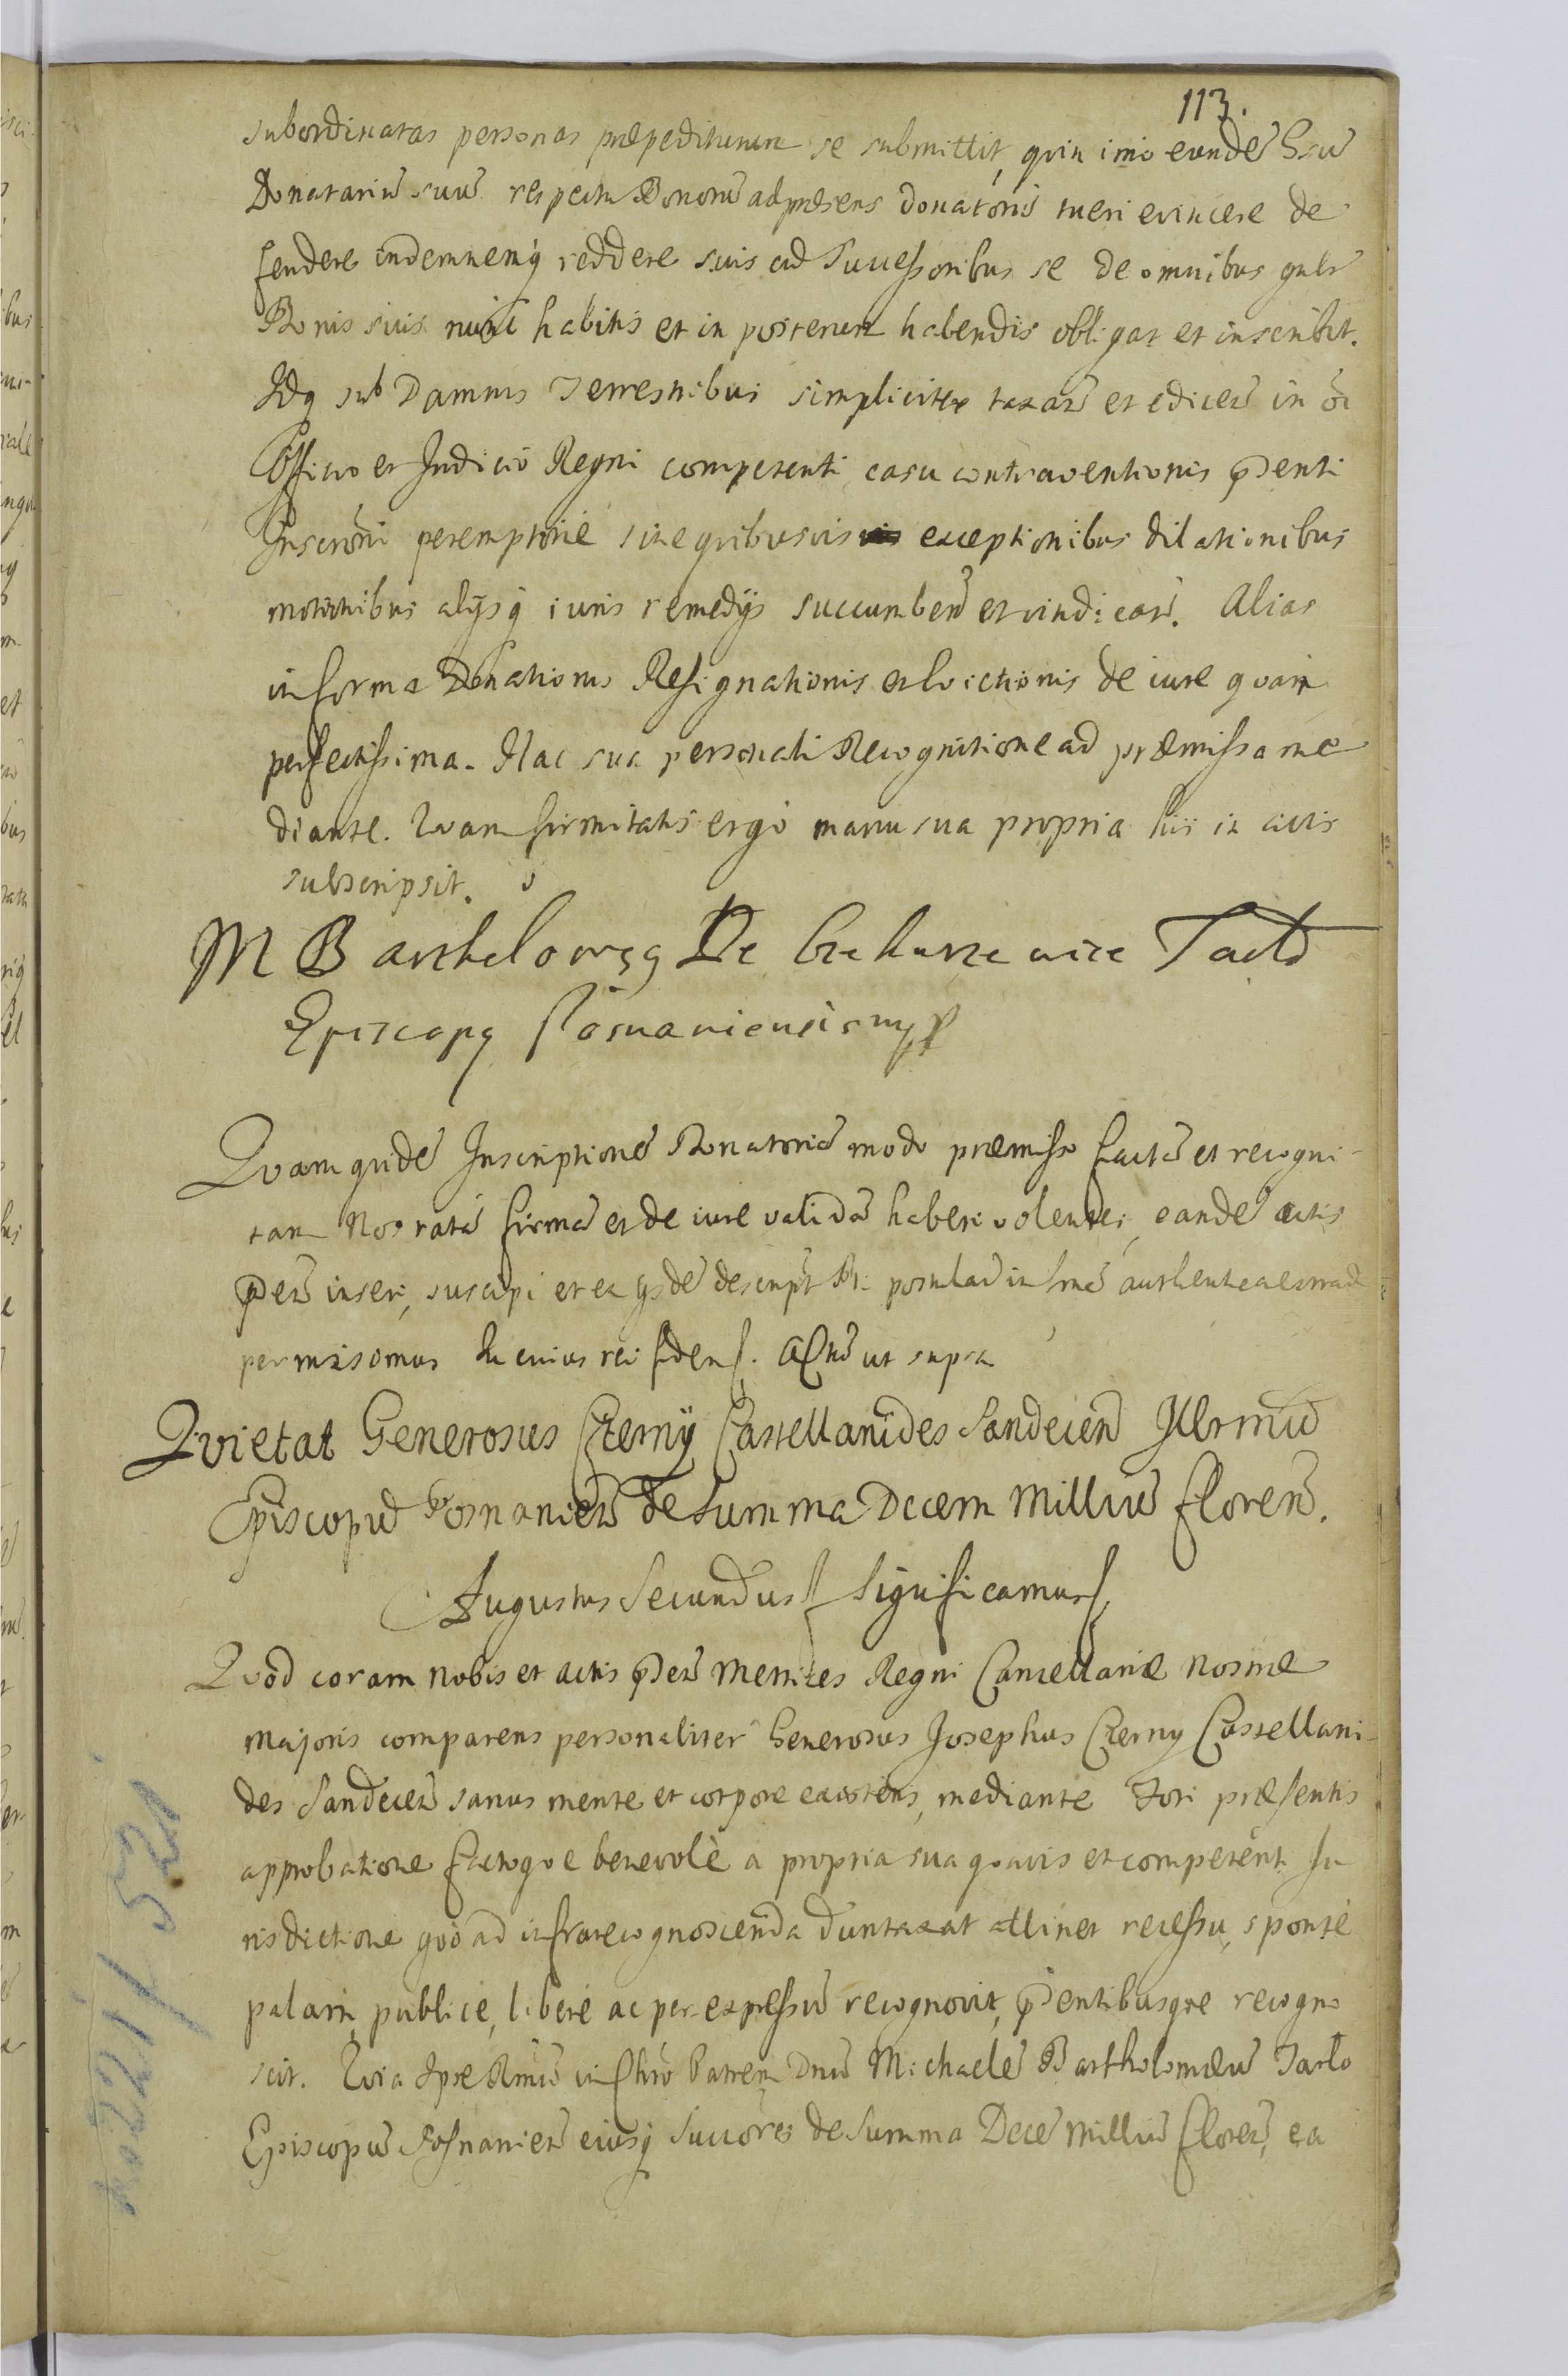 113.
subordinatas personas præpediturum se submittit, quin imo eundē Gsū
Donatariū suū respectu Bonorū ad præsens donatoris tueri evincere de
fendere indemnemq́ reddere suis cū Successoribus se de omnibus gnlr
Bonis suis nunc habitis et in posterum habendis obligat et inscribit.
Idq sub Damnis Terrestribus simpliciter taxan̄ et edicen̄ in o͞i
Officio et Iudicio Regni competenti casu contraventionis p͞ntenti
Inscrōni peremptorie sine quibusvis exceptionibus dilationibus
motionibus alijsq́ iuris remedijs succumben̄ et vindican̄. Alias
in forma Donationis Resignationis et Evictionis de iure quam
perfectissima. Hac sua personali Recognitione ad præmissa me
diante. Quam firmitatis ergo manu sua propria hic in actis
subscripsit.
M Bartholomeg De Czekarzewice Tarło
Episcopg Posnaniensis mpp
Quam quidē Inscriptionē Donatoriā modo præmisso factā et recogni-
tam Nos ratā firmā et de iure validā haberi volentes, eandē actis
p͞ntn̄ inseri, suscipi et ex ijsdē descript Pti postulan̄ in formā authentica extrad
permisimus In cuius rei fidem. Actū ut supra
Quietat Generosus Czerny Castellanides Sandecen̄ Illrmū
Episcopū Posnanien̄ de Summa Decem Milliū floren̄.
Augustus Secundus Significamus
Quod coram nobis et actis p͞ntn̄ Metrices Regni Cancellariæ nostræ
majoris comparens personaliter Generosus Josephus Czerny Castellani-
des Sandecen̄ sanus mente et corpore existens, mediante Fori præsentis
approbatione factoque benevolè a propria sua quavis et competent Iu
risdictione quo ad infra recognoscenda duntaxat attinet recessu, sponte
palam, publice, libere ac per expressū recognovit, p͞ntentibusque recogno
scit. Quia Ipse Rmū in Chrō Patrem Dnū Michaelē Bartholomæū Tarło
Episcopū Posnanien̄ eiusq́ Succōres de Summa Decē Milliū floren̄, ea